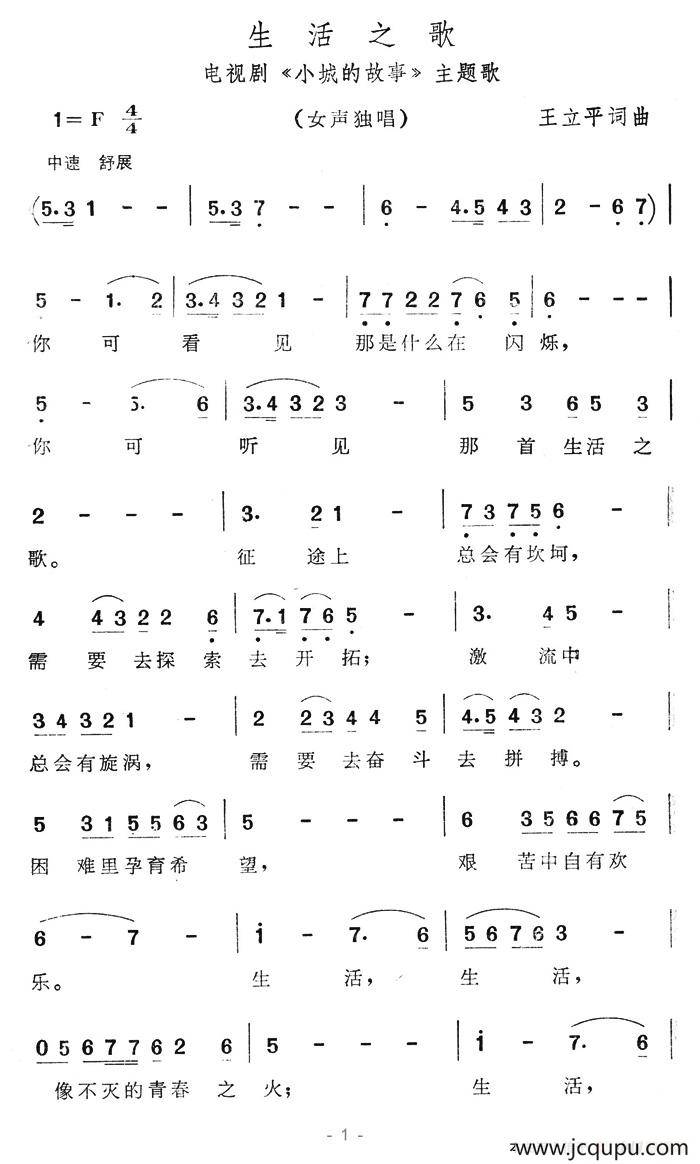 生活之歌
电视剧《小城的故事》主题歌
1=F 4/4 （女声独唱） 王立平词曲
中速 舒展
(5.3 1 - - | 5.3 7 - - | 6 - 4.5 4 3 | 2 - 6 7) |
5 - 1. 2 | 3.4 3 2 1 - | 7 7 2 2 7 6 5 | 6 - - - |
你 可 看 见 那是什么在 闪 烁，
5 - 5. 6 | 3.4 3 2 3 - | 5 3 6 5 3 |
你 可 听 见 那 首 生活 之
2 - - - | 3. 2 1 - | 7 3 7 5 6 - |
歌。 征 途上 总会有坎坷，
4 4 3 2 2 6 | 7.1 7 6 5 - | 3. 4 5 - |
需 要 去探 索 去 开 拓； 激 流中
3 4 3 2 1 - | 2 2 3 4 4 5 | 4.5 4 3 2 - |
总会有旋涡， 需 要 去奋 斗 去 拼 搏。
5 3 1 5 5 6 3 | 5 - - - | 6 3 5 6 6 7 5 |
困 难里孕育希 望， 艰 苦中自有欢
6 - 7 - | i - 7. 6 | 5 6 7 6 3 - |
乐。 生 活， 生 活，
0 5 6 7 7 6 2 6 | 5 - - - | i - 7. 6 |
像不灭的青春 之 火； 生 活，
- 1 -
www.jcqupu.com